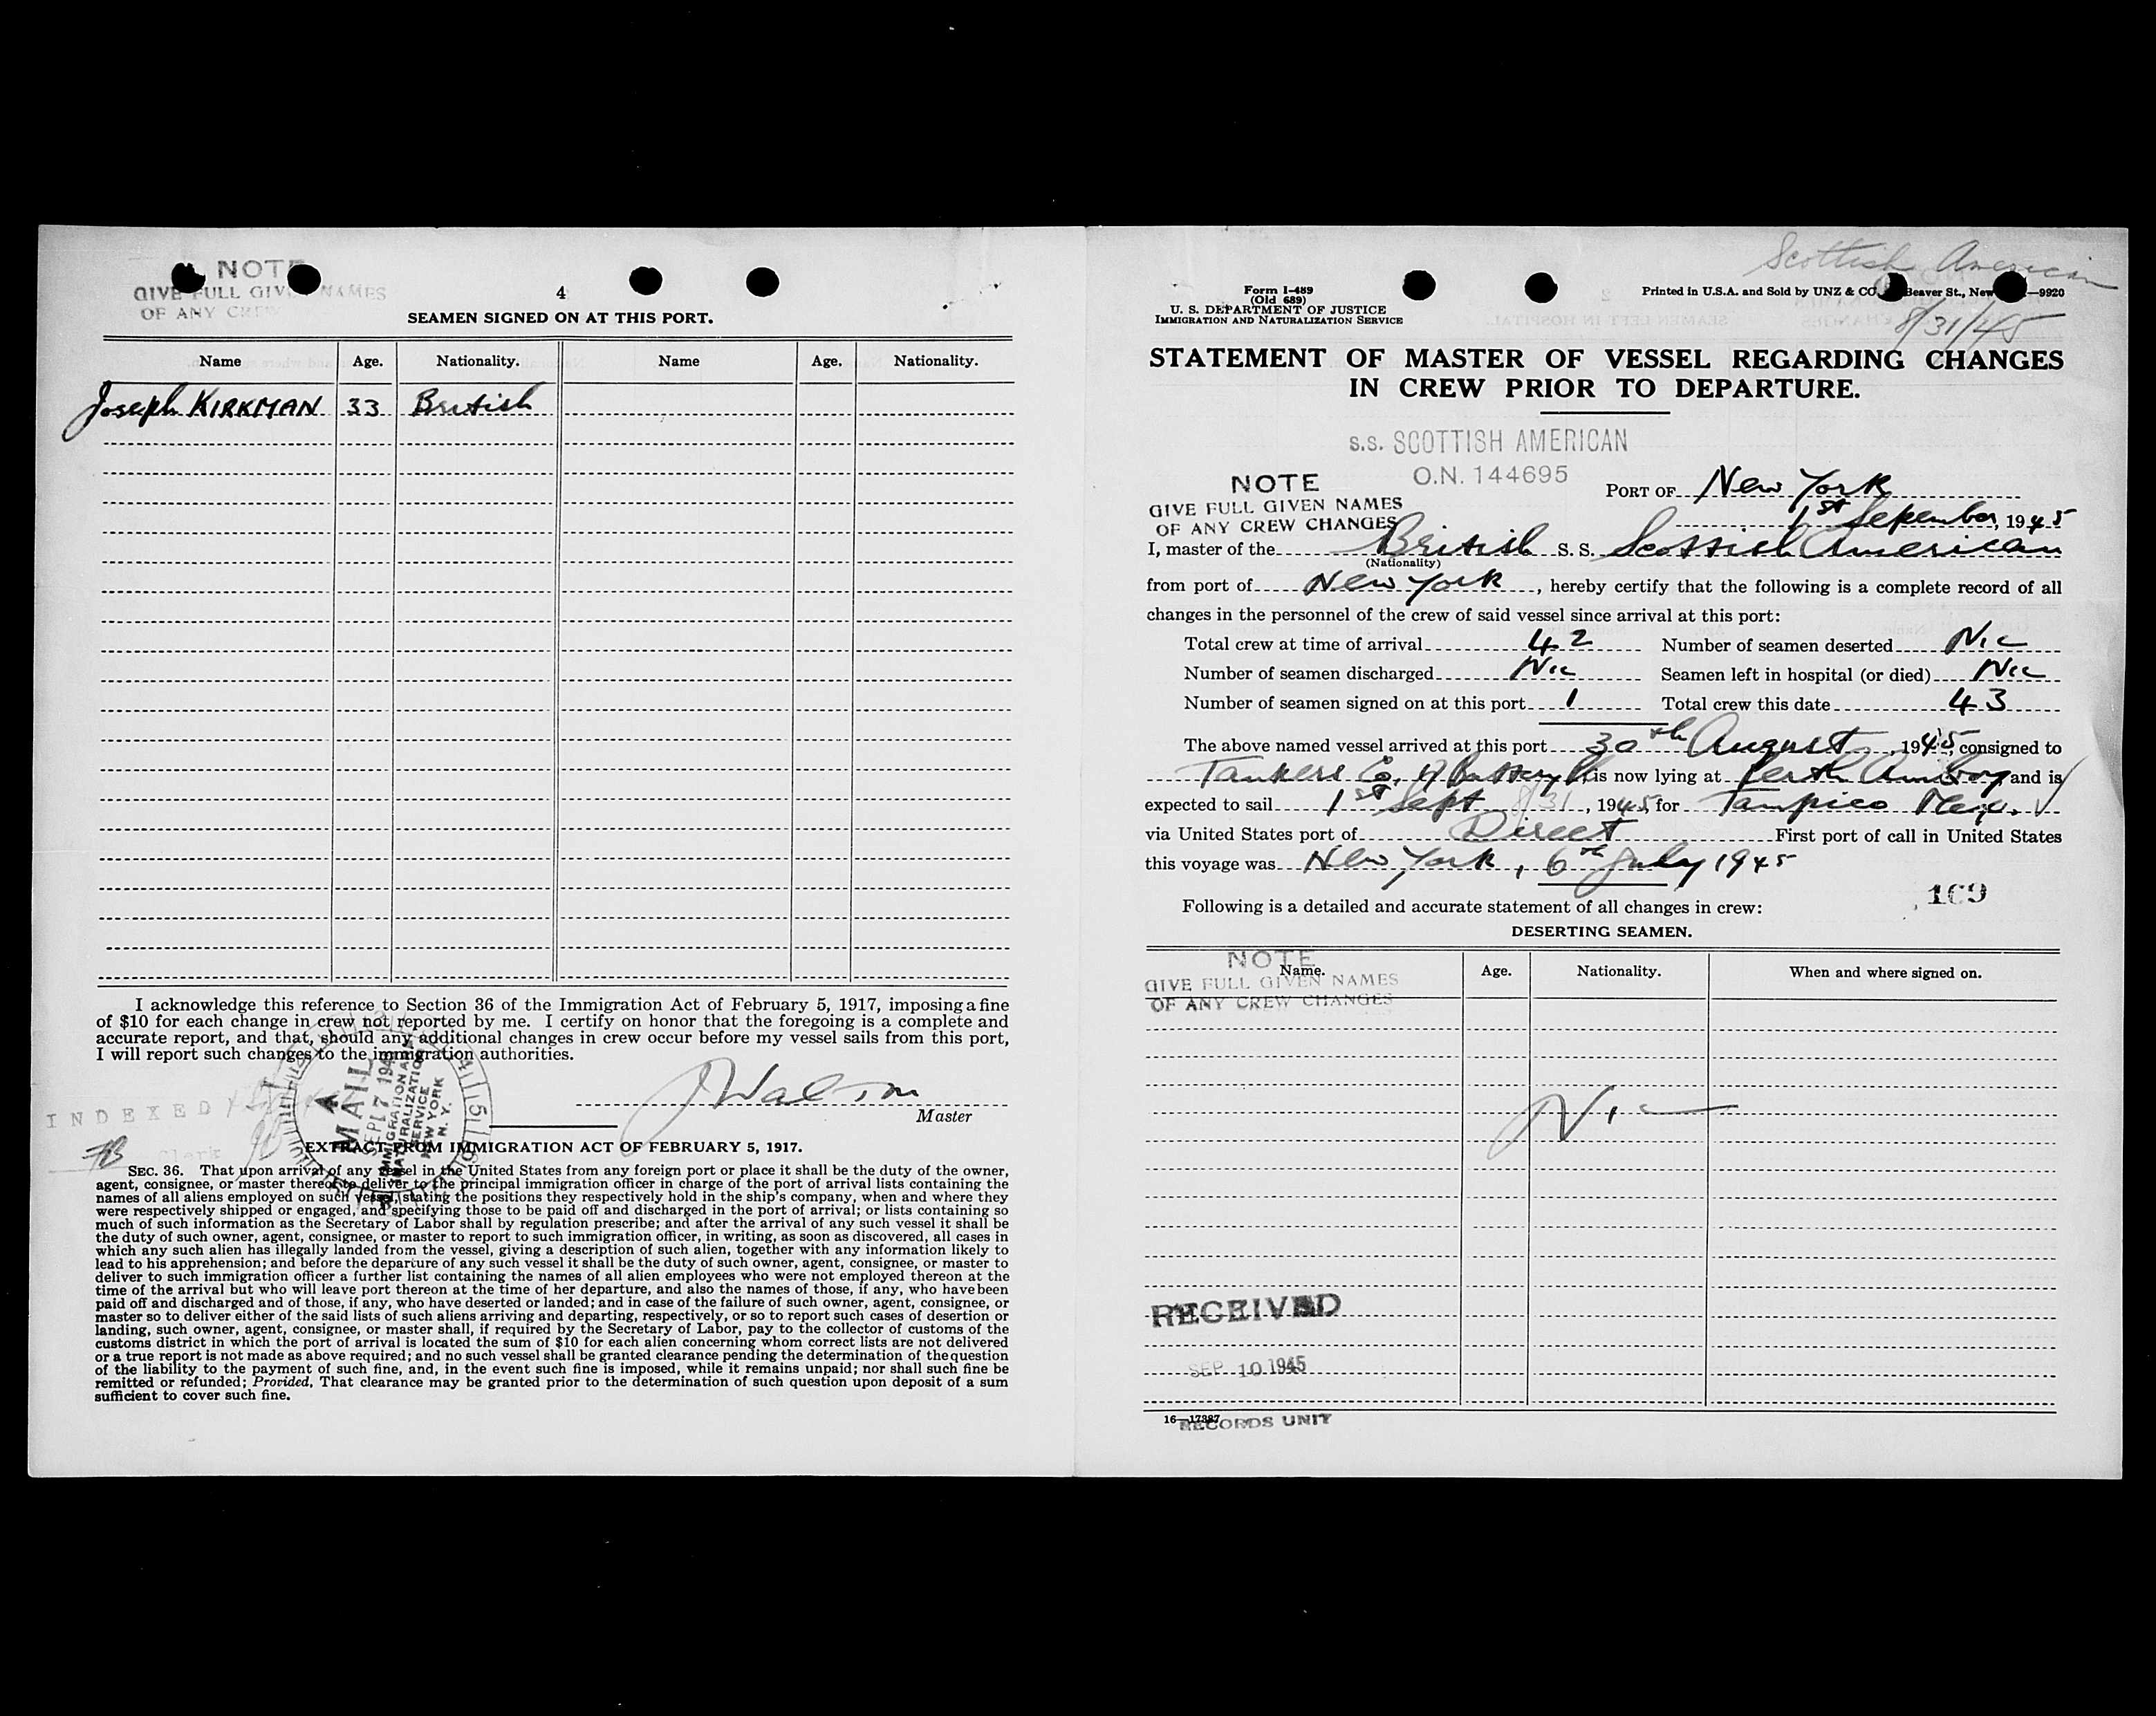 NOTE
GIVE FULL GIVEN NAMES
OF ANY CREW
4
SEAMEN SIGNED ON AT THIS PORT.
Name Age. Nationality. Name Age. Nationality.
Joseph KIRKMAN 33 British
I acknowledge this reference to Section 36 of the Immigration Act of February 5, 1917, imposing a fine
of $10 for each change in crew not reported by me. I certify on honor that the foregoing is a complete and
accurate report, and that, should any additional changes in crew occur before my vessel sails from this port,
I will report such changes to the immigration authorities.
Master
INDEXED
Clerk
MAIL
SEP 17 194
IMMIGRATION AND
NATURALIZATION
SERVICE
NEW YORK
N. Y.
EXTRACT FROM IMMIGRATION ACT OF FEBRUARY 5, 1917.
SEC. 36. That upon arrival of any vessel in the United States from any foreign port or place it shall be the duty of the owner,
agent, consignee, or master thereof to deliver to the principal immigration officer in charge of the port of arrival lists containing the
names of all aliens employed on such vessel, stating the positions they respectively hold in the ship's company, when and where they
were respectively shipped or engaged, and specifying those to be paid off and discharged in the port of arrival; or lists containing so
much of such information as the Secretary of Labor shall by regulation prescribe; and after the arrival of any such vessel it shall be
the duty of such owner, agent, consignee, or master to report to such immigration officer, in writing, as soon as discovered, all cases in
which any such alien has illegally landed from the vessel, giving a description of such alien, together with any information likely to
lead to his apprehension; and before the departure of any such vessel it shall be the duty of such owner, agent, consignee, or master to
deliver to such immigration officer a further list containing the names of all alien employees who were not employed thereon at the
time of the arrival but who will leave port thereon at the time of her departure, and also the names of those, if any, who have been
paid off and discharged and of those, if any, who have deserted or landed; and in case of the failure of such owner, agent, consignee, or
master so to deliver either of the said lists of such aliens arriving and departing, respectively, or so to report such cases of desertion or
landing, such owner, agent, consignee, or master shall, if required by the Secretary of Labor, pay to the collector of customs of the
customs district in which the port of arrival is located the sum of $10 for each alien concerning whom correct lists are not delivered
or a true report is not made as above required; and no such vessel shall be granted clearance pending the determination of the question
of the liability to the payment of such fine, and, in the event such fine is imposed, while it remains unpaid; nor shall such fine be
remitted or refunded; Provided, That clearance may be granted prior to the determination of such question upon deposit of a sum
sufficient to cover such fine.
Scottish American
8/31/45
Form I-489
(Old 689)
U. S. DEPARTMENT OF JUSTICE
IMMIGRATION AND NATURALIZATION SERVICE
Printed in U.S.A. and Sold by UNZ & CO. Beaver St., New —9920
STATEMENT OF MASTER OF VESSEL REGARDING CHANGES
IN CREW PRIOR TO DEPARTURE.
S.S. SCOTTISH AMERICAN
O.N. 144695
NOTE
GIVE FULL GIVEN NAMES
OF ANY CREW CHANGES
PORT OF New York
1st Sepember, 1945
I, master of the British S. S. Scottish American
(Nationality)
from port of New York, hereby certify that the following is a complete record of all
changes in the personnel of the crew of said vessel since arrival at this port:
Total crew at time of arrival 42 Number of seamen deserted NIL
Number of seamen discharged NIL Seamen left in hospital (or died) NIL
Number of seamen signed on at this port 1 Total crew this date 43
The above named vessel arrived at this port 30th August, 1945, consigned to
Tankers Co. 17 Battery Pl is now lying at Perth Amboy and is
expected to sail 1st Sept 8/31, 1945, for Tampico Mex.
via United States port of Direct First port of call in United States
this voyage was New York, 6th July 1945
169
Following is a detailed and accurate statement of all changes in crew:
DESERTING SEAMEN.
NOTE
GIVE FULL GIVEN NAMES
OF ANY CREW CHANGES
Name. Age. Nationality. When and where signed on.
NIL
RECEIVED
SEP 10 1945
RECORDS UNIT
16—17387